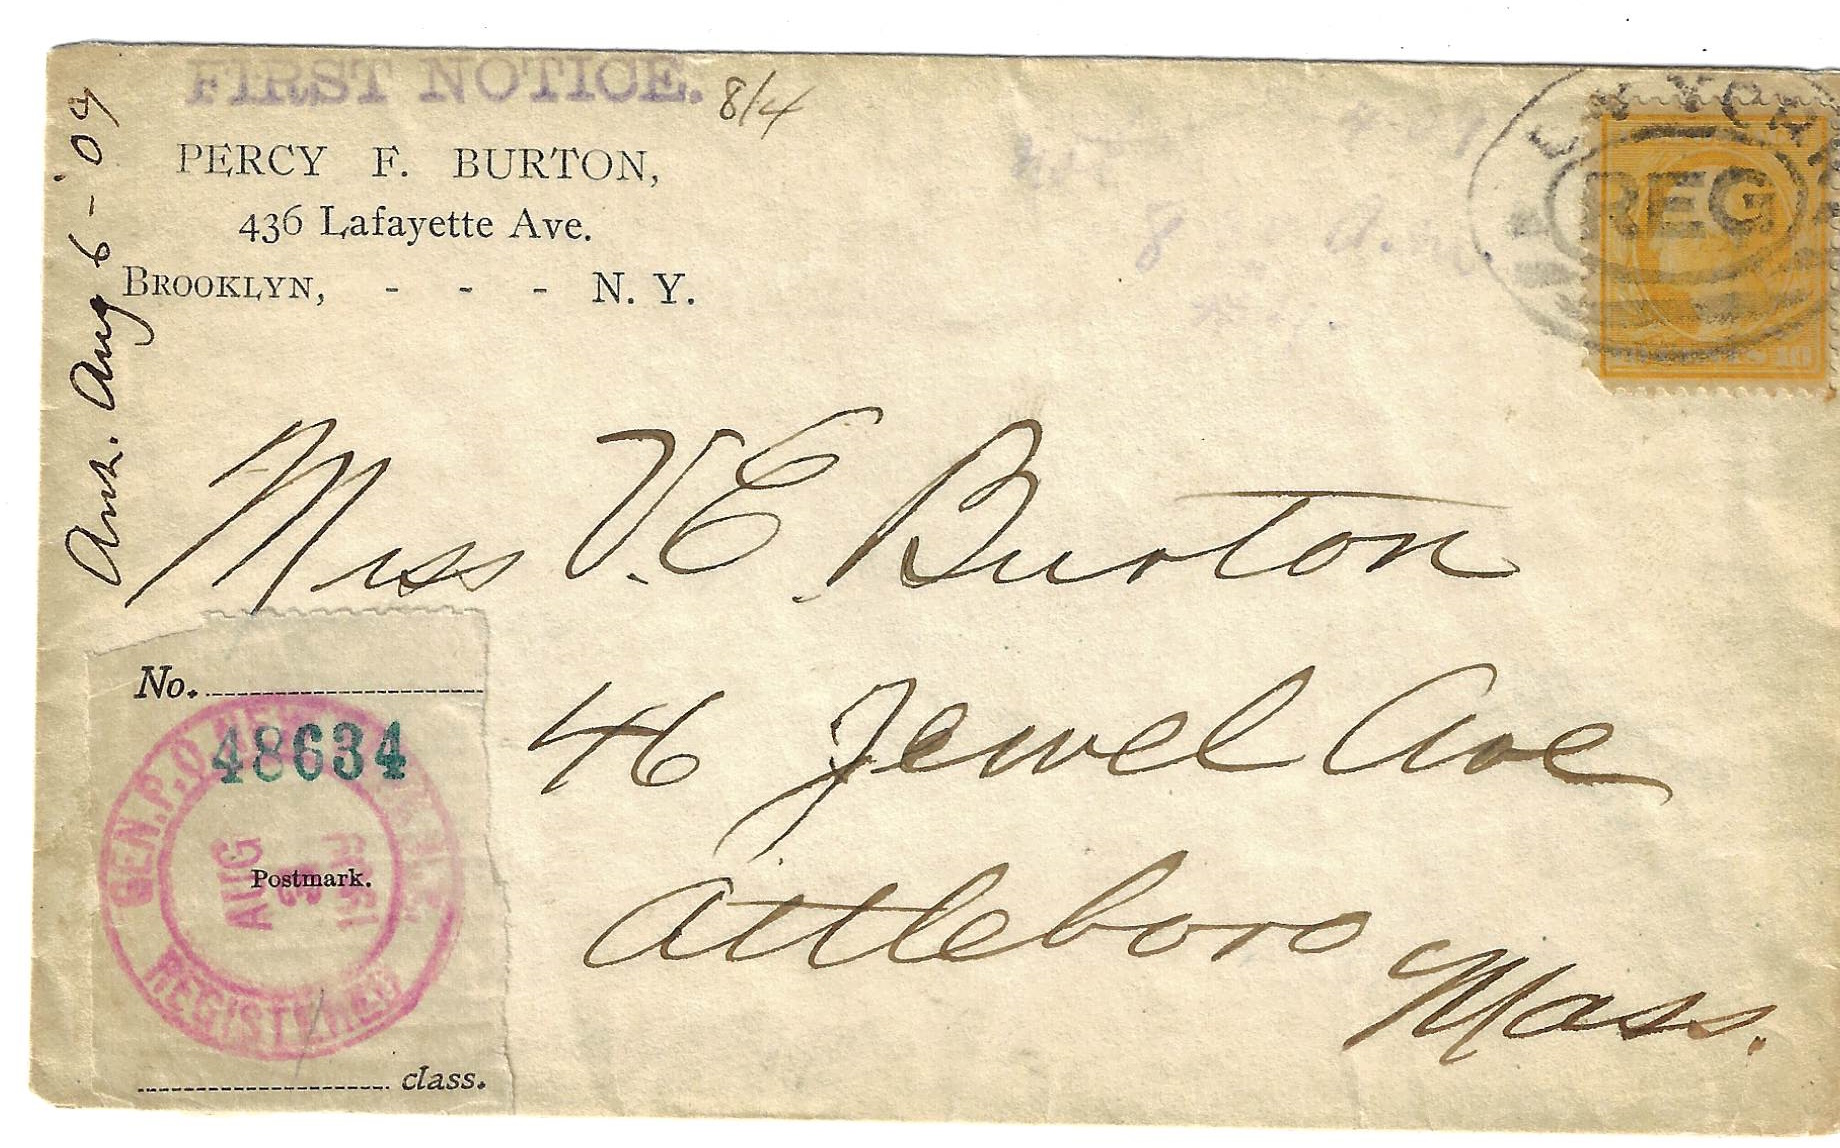 FIRST NOTICE. 8/4
PERCY F. BURTON,
436 Lafayette Ave.
BROOKLYN, - - - N. Y.
Ans. Aug 6 - '09
REG
10
Miss V. E. Burton
46 Jewel Ave
Attleboro
Mass.
No.
48634
GEN. P.O.
AUG 3 1909
Postmark.
REGISTERED
class.